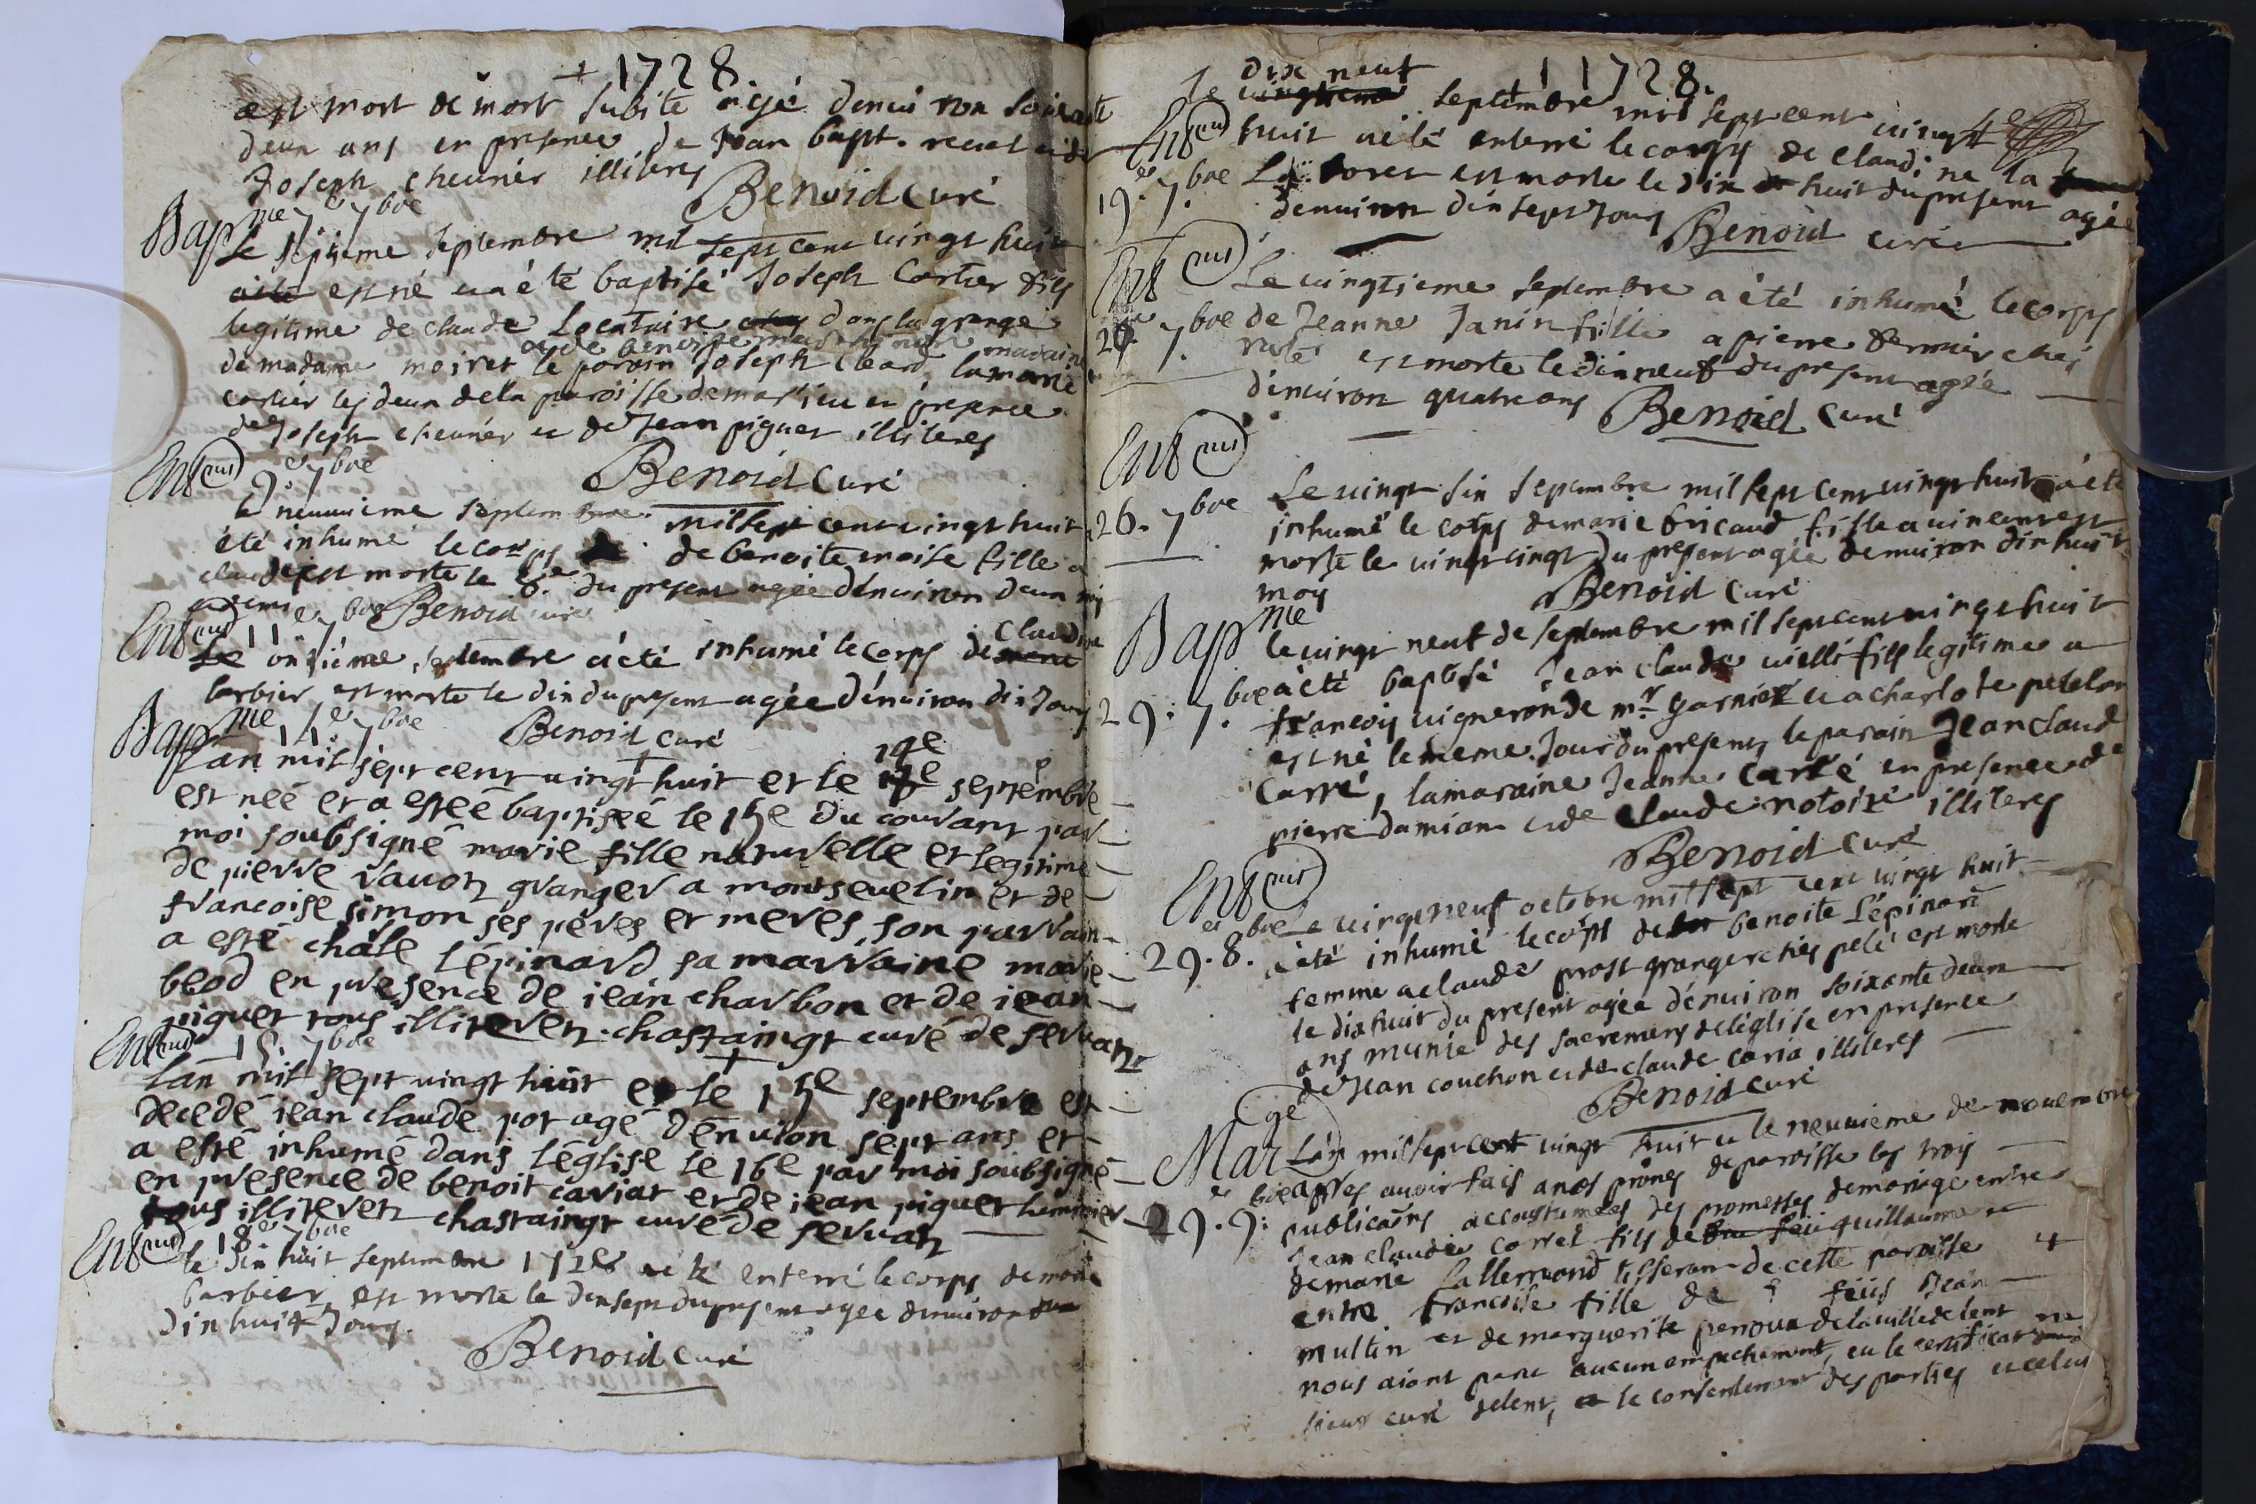 + 1728.
est mort de mort subite agé denuiron soixante
deux ans en presence de Jean bapt. recul et de
Joseph cheunér illiteres
Benoid Curé
Bapme 7e 7bre
Le septieme septembre mil sept cent uingt huit
est né et a été baptisé Joseph Cortier fils
legitime de claude Locataire dans la grange
de madame moiret le parain Joseph Cleard la maraine marie
cortier les deux de la paroisse de marlieu en presence
de Joseph cheunér et de Jean piguet illiteres
Benoid Curé
Entment 9e 7bre
le neuuieme septembre mil sept cent uingt huit a
été inhumé le corps de benoite moise fille a
claude est morte le 8e du present agée denuiron deux ans
et demi Benoid curé
Entment 11e 7bre
Le onsiéme septembre a été inhumé le corps de Claudine
barbier est morte le dix du present agée dénuiron dix Jours
Benoid Curé
Bapme 14e 7bre
Lan mil sept cent uingt huit et le 14e septembre
est neé et a esteé baptiseé le 15e du couvant par
moi soubsigné marie fille naturelle et legitime
de pierre rauon granger a montseuelin et de
francoise simon ses péres et meres son parrain
a esté châle lépinard sa marraine marie
beod en presence de ieán charbon et de iean
piguet tous illiteren. chastaingt curé de seruan
Entment 15. 7bre
Lan mil sept uingt huit et le 15e septembre est
decedé ieán claude pot agé dénuion sept ans et
a esté inhumé dans léglise le 16e par moi soubsigné
en presence de benoit cariat et de iean piguet
tous illiteren chastaingt curé de seruan
Entment 18e 7bre
le dix huit septembre 1728 a eté enterré le corps de marie
barbier est morte le dix sept du present agée denuiron
dix huit Jours.
Benoid Curé
1728.
Le dix neuf septembre mil sept cent uingt
huit a été enterré le corps de Claudine la
foret est morte le dix huit du present agée
denuiron dix sept Jours
Benoid curé
Entment
19. 7bre
Entment
20. 7bre
Le uingtieme septembre a été inhumé le corps
de Jeanne Janin fille a pierre fermier chés
est morte le dix neuf du present agée
dénuiron quatre ans Benoid Curé
Entment
26. 7bre
Le uingt six septembre mil sept cent uingt huit a été
inhumé le corps de marie bricaud fille a uincent est
morte le uingt cinq du present agée denuiron dix huit
mois Benoid Curé
Bapme
29. 7bre
le uingt neuf de septembre mil sept cent uingt huit
a été baptisé Jean claude uielli fils legitime a
francois uigneron de mr garnier et a charlote petelon
est né le meme Jour du present, le parain Jean Claud
Carré, la maraine Jeanne Carré en presence de
pierre damian et de Claude notoire illiteres
Benoid Curé
Entment
29. 8bre
Le uingt neuf octobre mil sept cent uingt huit
a été inhumé le corps de benoite Lépinard
femme a claude prost granger chés pelé est morte
le dix huit du present agée dénuiron soixante deux
ans munie des sacremens de léglise en presence
de Jean couchon et de claude caria illiteres
Benoid Curé
Marge
29. 9bre
Lan mil sept cent uingt huit et le neuuieme de nouembre
apres auoir fais a nos prônes de paroisse les trois
publications accoustumées des promesses de mariage entre
Jean claude corret fils de feu guillaume et
de marie Lallemand tisseran de cette paroisse et
entre francoise fille de feus Jean
multin et de marguerite penoux de la uille de lent ne
nous aiant paru aucun empechement, eu le certificat
sieur curé de lent, et le consentement des parties et celui